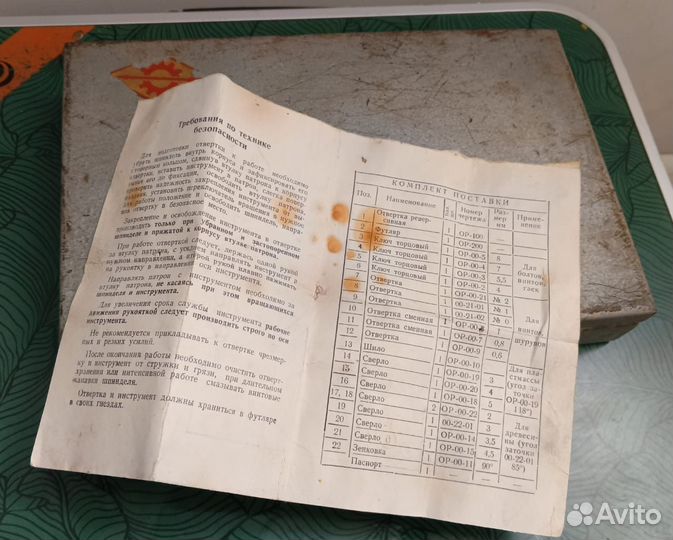 Требования по технике
безопасности
Для подготовки отвертки к работе необходимо
убрать шпиндель внутрь корпуса и зафиксировать его
стопорным кольцом, сдвинув втулку патрона к корпусу
отвертки, вставить инструмент в патрон, слегка повер-
его до фиксации, освободить втулку патрона,
проверить надежность закрепления инструмента от вы-
установить переключатель вращения в нужное
для работы положение и освободить шпиндель, напра-
отвертку в безопасное место.
Закрепление и освобождение инструмента в отвертке
производить только при убранном и застопоренном
шпинделе и прижатой к корпусу втулке патрона.
При работе отверткой следует, держась одной рукой
за втулку патрона, с усилием направлять инструмент в
нужном направлении, а второй рукой плавно нажимать
на рукоятку в направлении оси инструмента.
Направлять патрон с инструментом необходимо за
втулку патрона, не касаясь при этом вращающихся
шпинделя и инструмента.
Для увеличения срока службы инструмента рабочие
движения рукояткой следует производить строго по оси
инструмента.
Не рекомендуется прикладывать к отвертке чрезмер-
ных и резких усилий.
После окончания работы необходимо очистить отверт-
ку и инструмент от стружки и грязи, при длительном
хранении или интенсивной работе смазывать винтовые
канавки шпинделя.
Отвертка и инструмент должны храниться в футляре
в своих гнездах.
КОМПЛЕКТ ПОСТАВКИ
Поз. Наименование Кол. Номер чертежа Раз- мер мм Приме- нение
1 Отвертка ревер-
сивная 1 ОР-100 —
2 Футляр 1 ОР-200 —
3 Ключ торцовый 1 ОР-00-5 8 Для
4 Ключ торцовый 1 ОР-00-4 7 болтов,
5 Ключ торцовый 1 ОР-00-3 5,5 винтов,
6 Ключ торцовый 1 ОР-00-2 4 гаек
7 Отвертка 1 00-21 № 2
8 Отвертка 1 00-21-01 № 1 Для
9 Отвертка 1 00-21-02 № 0 винтов,
10 Отвертка сменная 1 ОР-00-8 1 шурупов
11 Отвертка сменная 1 ОР-00-7 0,8
12 Отвертка 1 ОР-00-9 0,6
13 Шило 1 ОР-00-10
14 Сверло 1 ОР-00-19 3 Для пла-
15 Сверло 1 ОР-00-20 4 стмассы (угол за-
16 Сверло 1 ОР-00-18 5 точки ОР-00-19
17, 18 Сверло 2 ОР-00-22 2 118°)
19 Сверло 1 00-22-01 3 Для
20 Сверло 1 ОР-00-14 3,5 древеси-
21 Сверло 1 ОР-00-15 4,5 ны (угол заточки
22 Зенковка 1 ОР-00-11 90° 00-22-01 85°)
Паспорт 1 — —
Avito